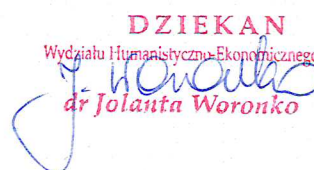 DZIEKAN
Wydziału Humanistyczno-Ekonomicznego
J. Woronko
dr Jolanta Woronko